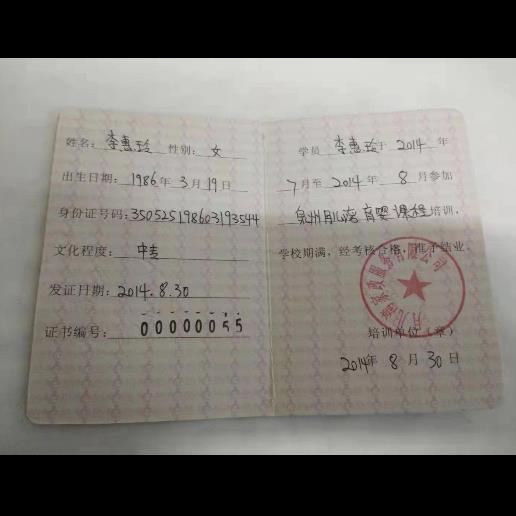 姓名：李惠玲 性别：女
出生日期：1986年3月19日
身份证号码：350525198603193544
文化程度：中专
发证日期：2014.8.30
证书编号：00000055
学员 李惠玲于 2014 年
7月至 2014年 8月参加
泉州月儿湾育婴课程培训，
学校期满，经考核合格，准予结业。
培训单位（章）
2014年 8 月 30 日
家政服务有限公司